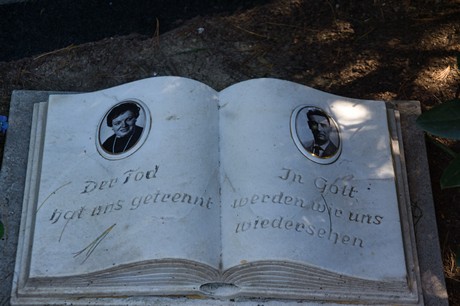 Der Tod
hat uns getrennt
In Gott
werden wir uns
wiedersehen